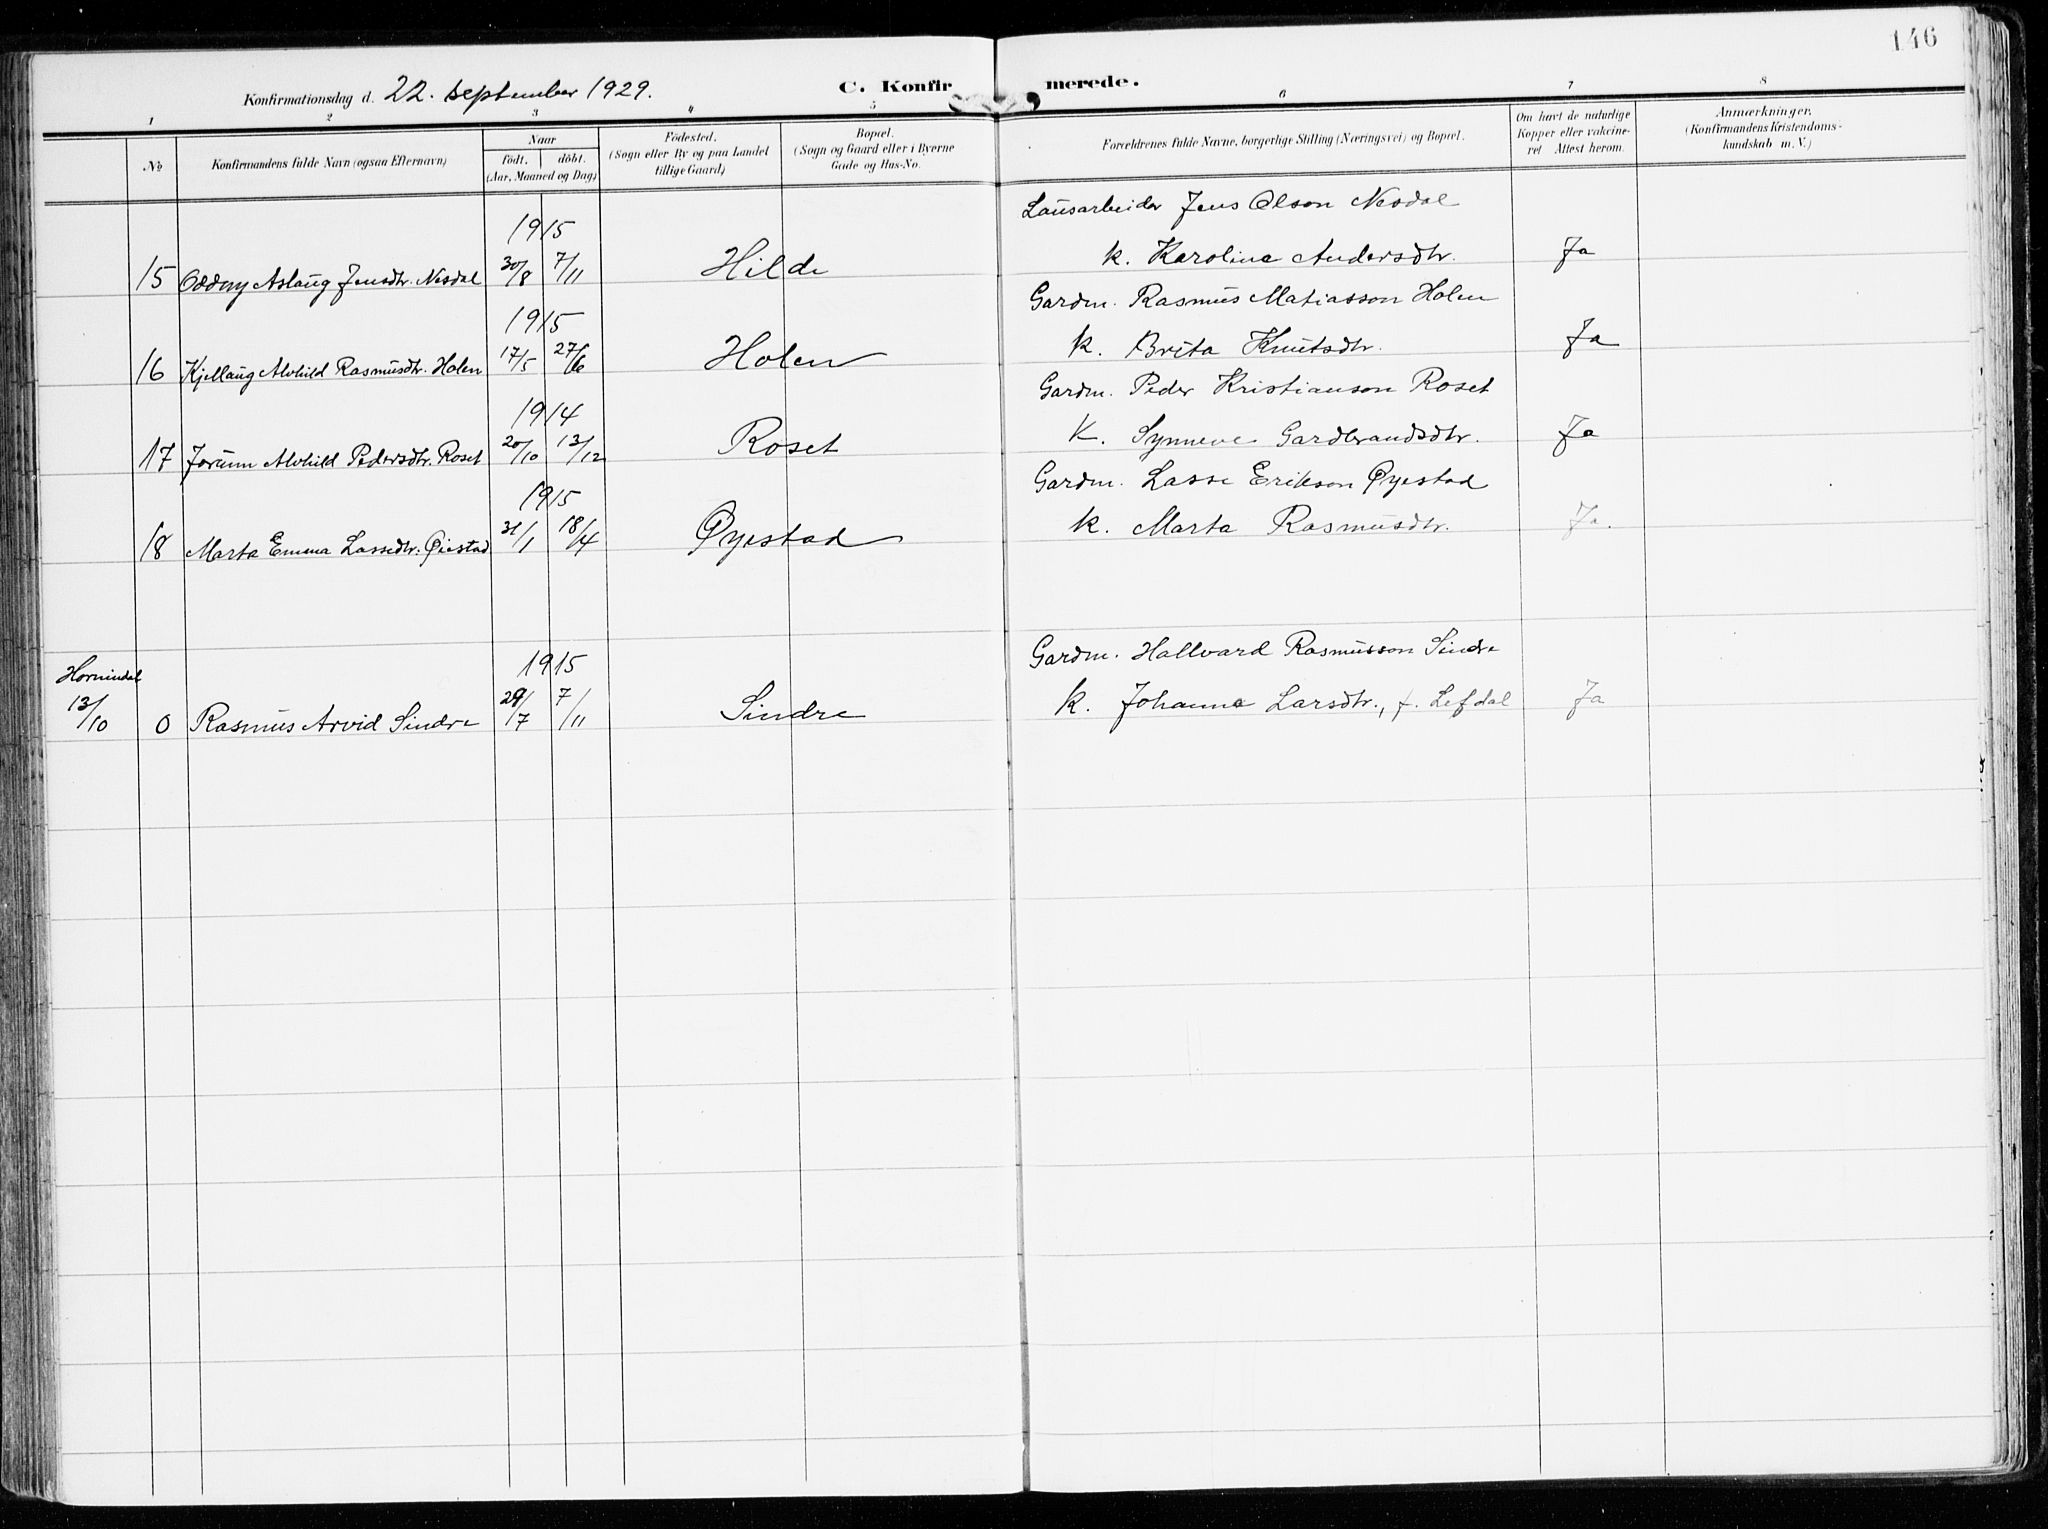 146
Konfirmationsdag d. 22. september 1929.
C. Konfirmerede.
1 2 3 4 5 6 7 8
No
Konfirmandens fulde Navn (ogsaa Efternavn)
Naar
födt. döbt.
(Aar, Maaned og Dag)
Födested.
(Sogn eller By og paa Landet
tillige Gaard)
Bopæl.
(Sogn og Gaard eller i Byerne
Gade og Hus-No.
Forældrenes fulde Navne, borgerlige Stilling (Næringsvei) og Bopæl.
Om havt de naturlige
Kopper eller vakcine-
ret Attest herom.
Anmærkninger.
(Konfirmandens Kristendoms-
kundskab m. V.)
1915
Lausarbeider Jens Olson Nesdal
15 Oddny Aslaug Jensdtr. Nesdal 30/8 7/11 Hilde k. Karolina Andersdtr. Ja
1915
Gardm. Rasmus Matiasson Holen
16 Kjellaug Alvhild Rasmusdtr. Holen 17/5 27/6 Holen k. Brita Knutsdtr. Ja
1914
Gardm. Peder Kristianson Roset
17 Jorunn Alvhild Pedersdtr. Roset 20/10 13/12 Roset K. Synneve Gardbrandsdtr. Ja
1915
Gardm. Lasse Erikson Øyestad
18 Marta Emma Lassedtr. Øiestad 31/1 18/4 Øyestad k. Marta Rasmusdtr. Ja.
1915
Gardm. Hallvard Rasmusson Sindre
Hornindal
13/10 0 Rasmus Arvid Sindre 29/7 7/11 Sindre k. Johanna Larsdtr., f. Lefdal Ja